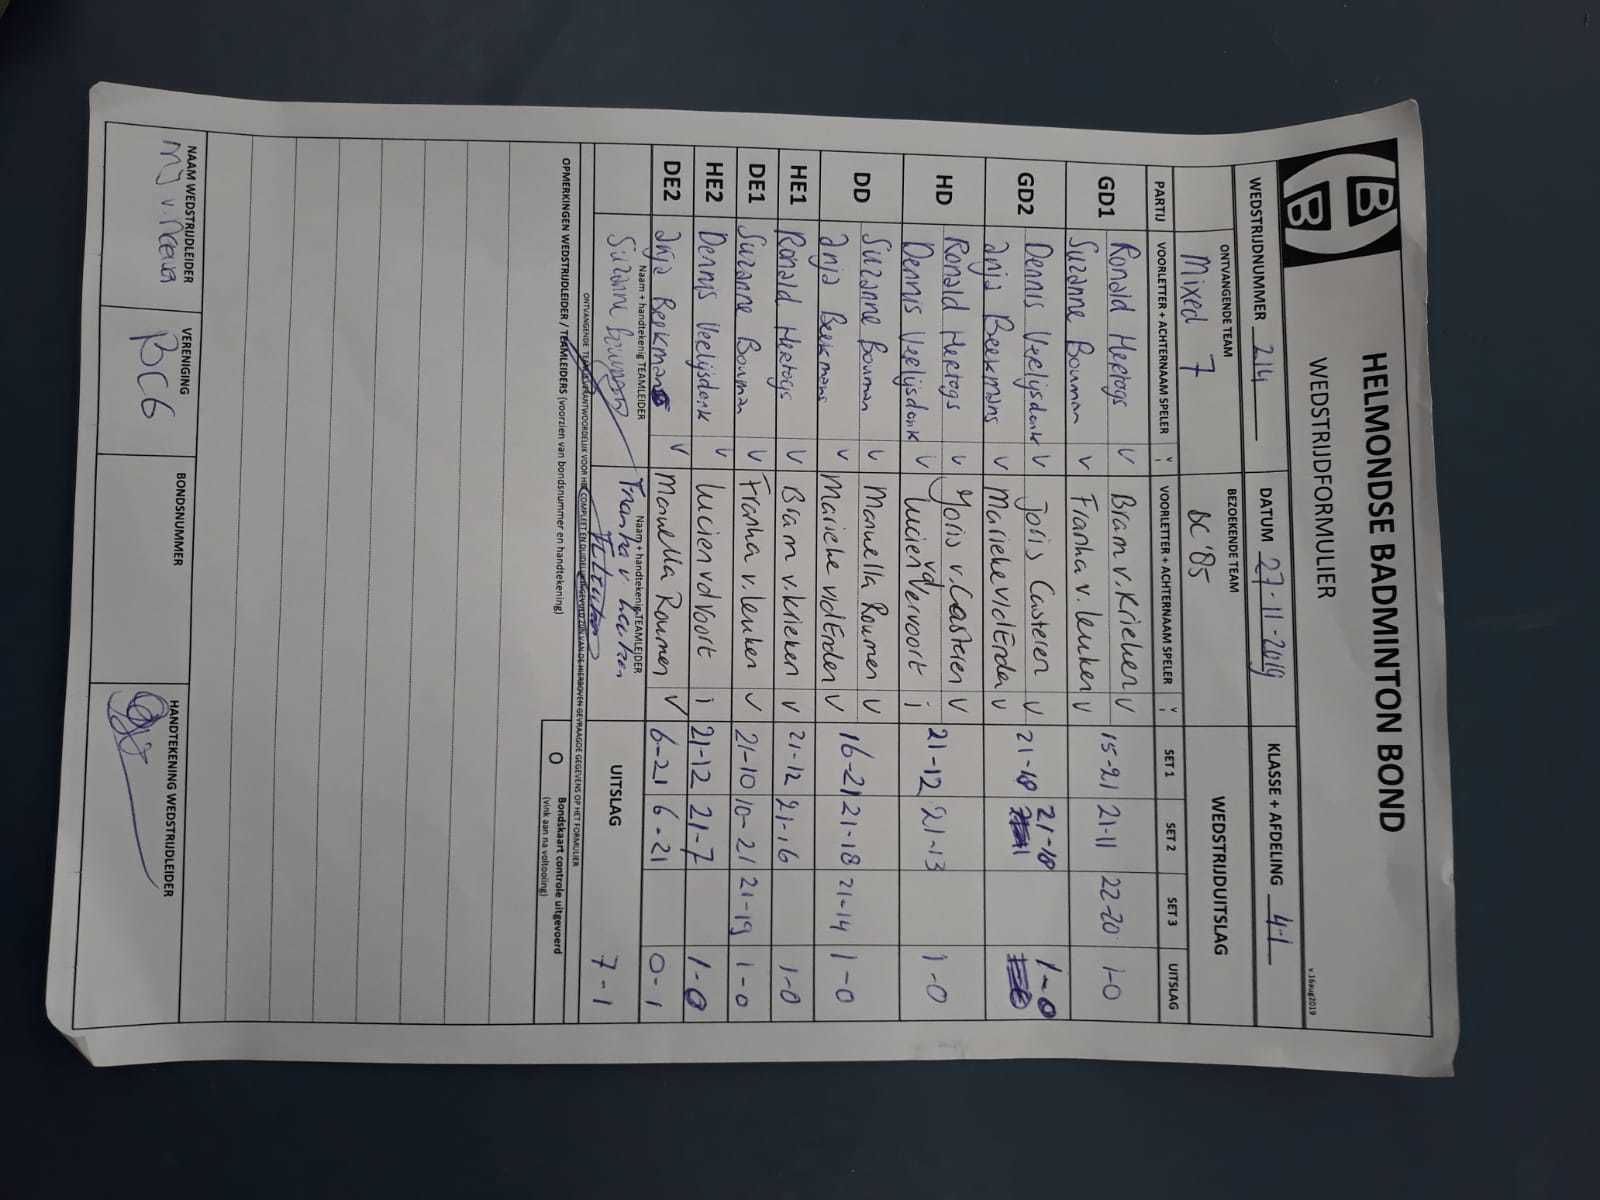 HBB
HELMONDSE BADMINTON BOND
WEDSTRIJDFORMULIER
v.16aug2019
WEDSTRIJDNUMMER 214 DATUM 27-11-2019 KLASSE + AFDELING 4-1
ONTVANGENDE TEAM BEZOEKENDE TEAM WEDSTRIJDUITSLAG
Mixed 7 BC '85
PARTIJ VOORLETTER + ACHTERNAAM SPELER V/I VOORLETTER + ACHTERNAAM SPELER V/I SET 1 SET 2 SET 3 UITSLAG
GD1 Ronald Hertogs V Bram v. Krieken V 15-21 21-11 22-20 1-0
Suzanne Bouman V Franka v. Leuken V
GD2 Dennis Veelijsdonk V Joris Casteren V 21-18 21-18 1-0
Anja Beekmans V Marieke v/d Erden V
HD Ronald Hertogs V Joris v. Casteren V 21-12 21-13 1-0
Dennis Veelijsdonk V Lucien vd Vervoort i
DD Suzanne Bouman V Manuella Roumen V 16-21 21-18 21-14 1-0
Anja Beekmans V Marieke v/d Erden V
HE1 Ronald Hertogs V Bram v. Krieken V 21-12 21-16 1-0
DE1 Suzanne Bouman V Franka v. Leuken V 21-10 10-21 21-19 1-0
HE2 Dennis Veelijsdonk V Lucien vd Voort i 21-12 21-7 1-0
DE2 Anja Beekmans V Manuella Roumen V 6-21 6-21 0-1
Naam + handtekenig TEAMLEIDER Naam + handtekenig TEAMLEIDER UITSLAG 7-1
Suzanne Bouman Franka v. Leuken
ONTVANGENDE TEAM VERANTWOORDELIJK VOOR HET COMPLEET EN DUIDELIJK INGEVULD ZIJN VAN DE HIERBOVEN GEVRAAGDE GEGEVENS OP HET FORMULIER
OPMERKINGEN WEDSTRIJDLEIDER / TEAMLEIDERS (voorzien van bondsnummer en handtekening)
O Bondskaart controle uitgevoerd
(vink aan na voltooiing)
NAAM WEDSTRIJDLEIDER VERENIGING BONDSNUMMER HANDTEKENING WEDSTRIJDLEIDER
MJ v. BCG